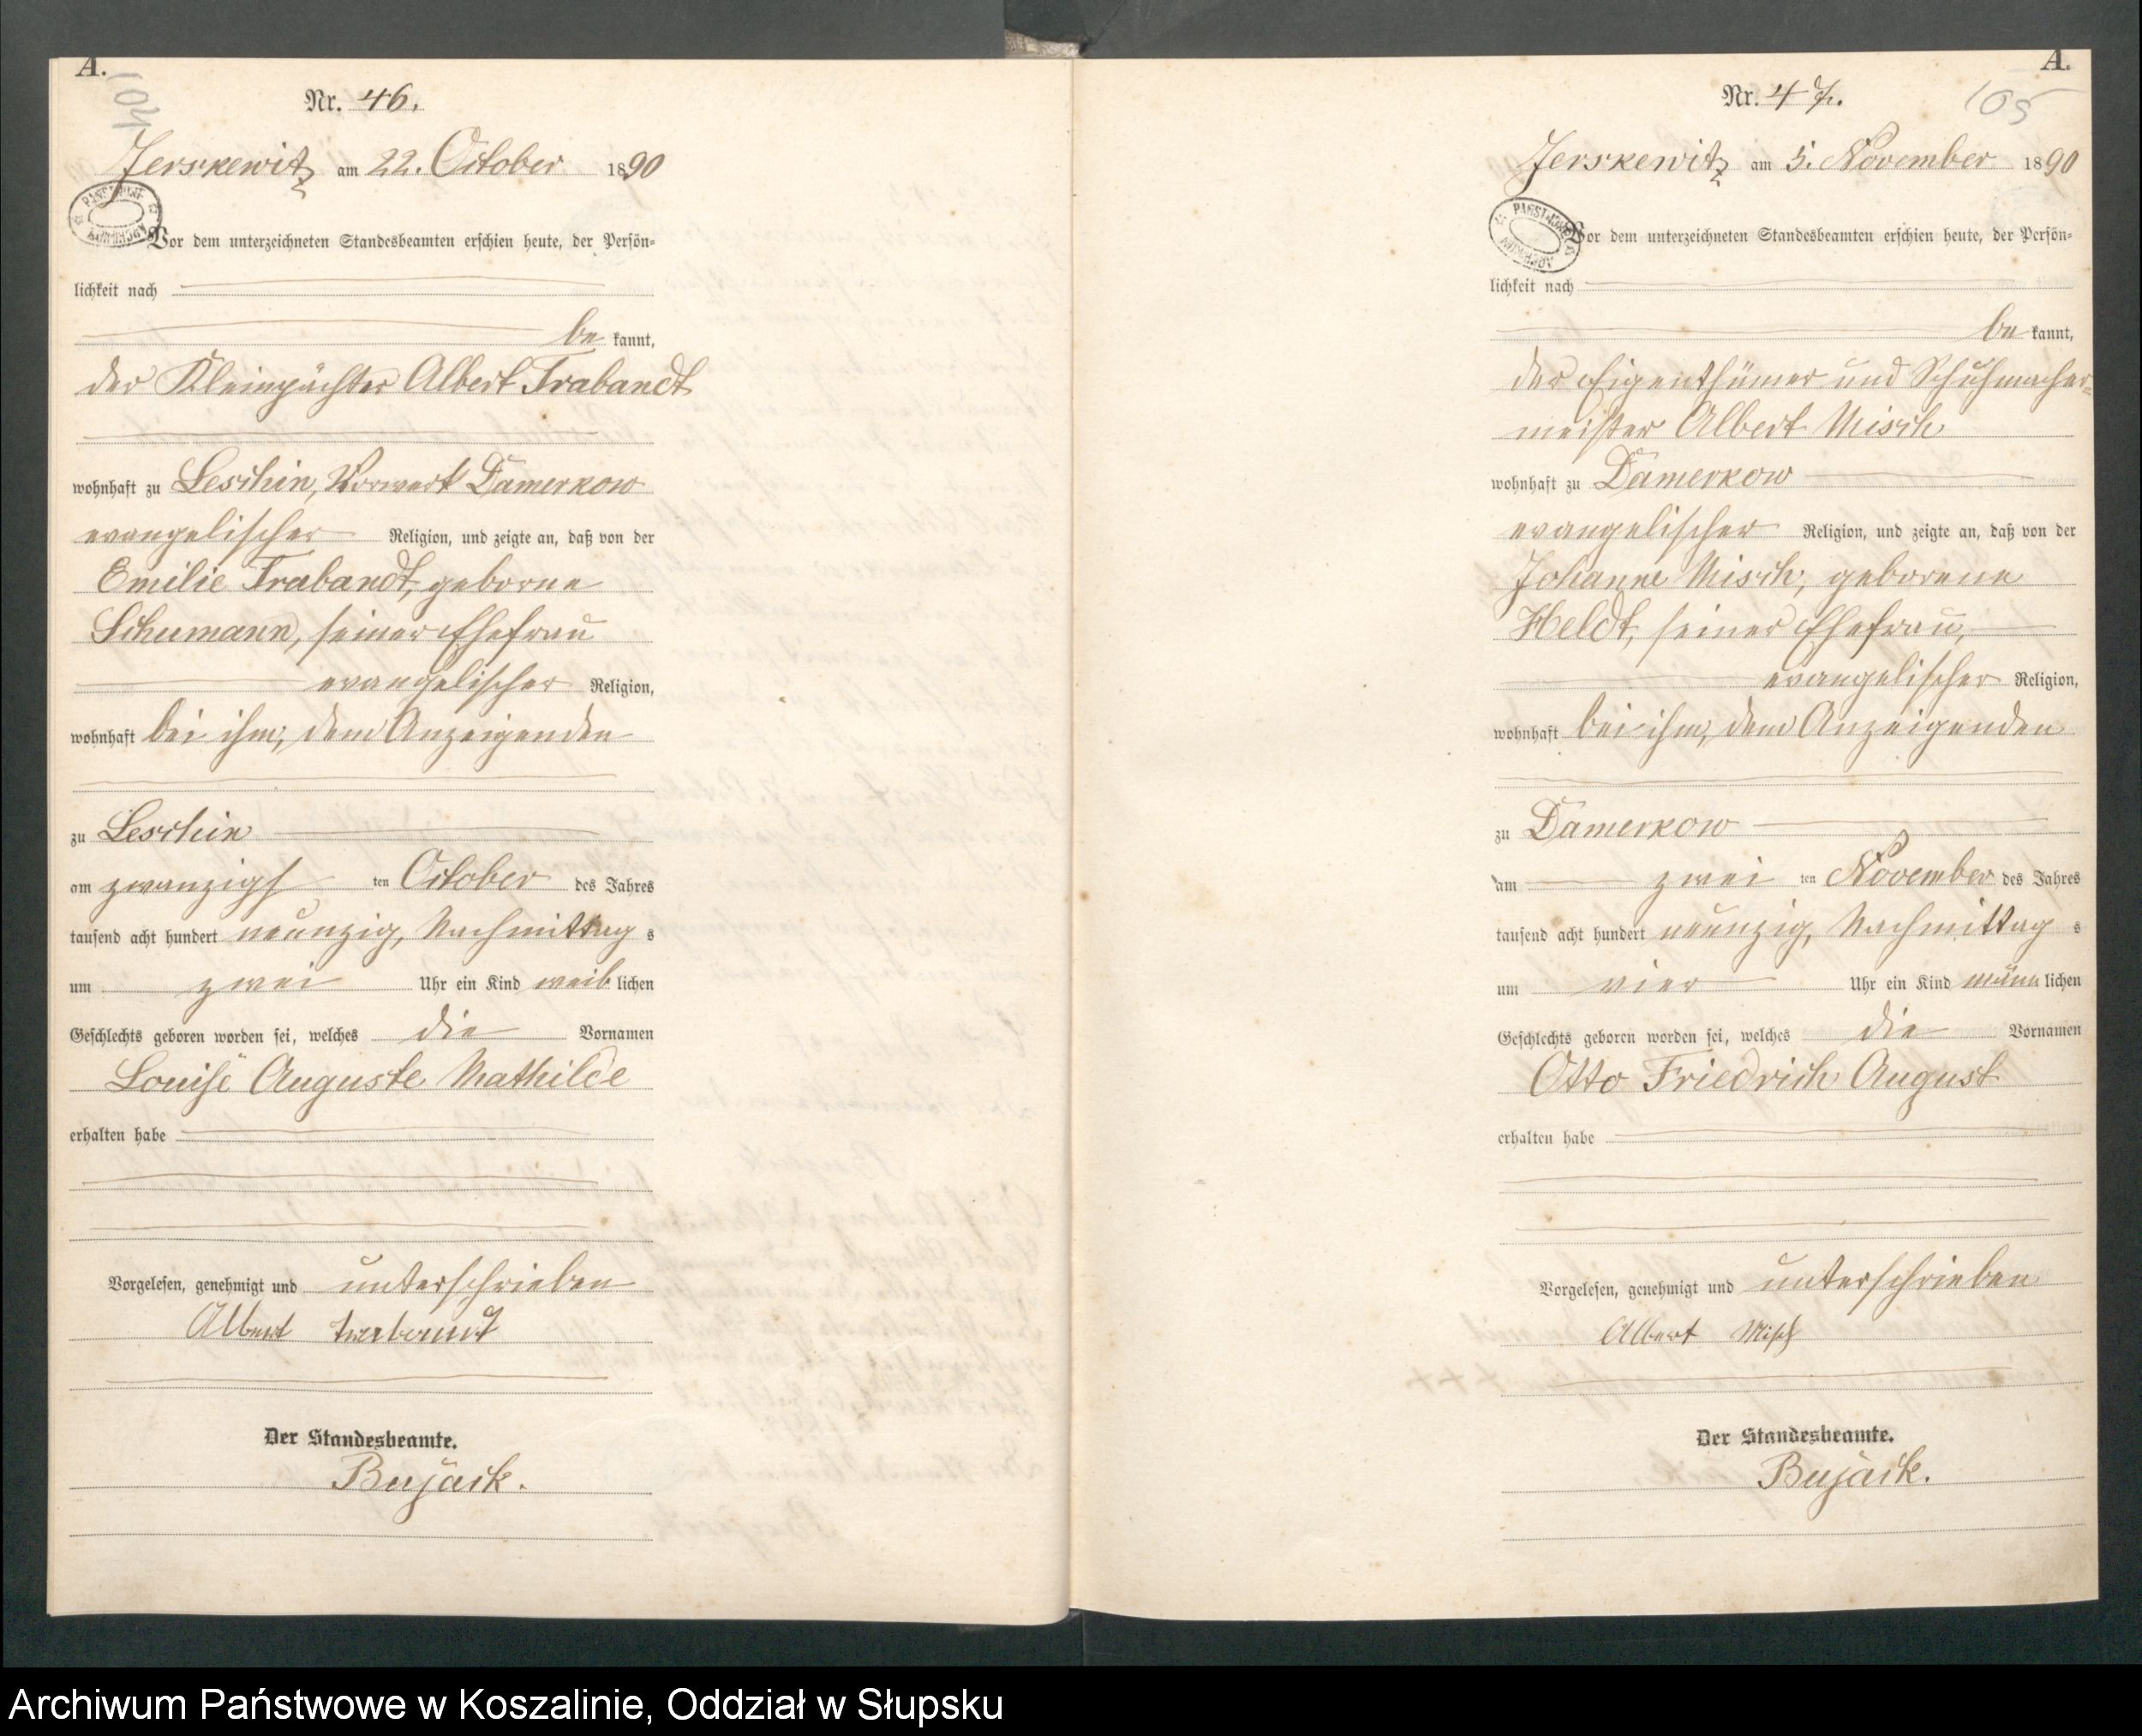 A.
104
Nr. 46.
Jerskewitz am 22. October 1890
Vor dem unterzeichneten Standesbeamten erschien heute, der Persön-
lichkeit nach
be kannt,
der Kleinpächter Albert Trabandt
wohnhaft zu Leschin, Vorwerk Damerkow
evangelischer Religion, und zeigte an, daß von der
Emilie Trabandt, geborne
Schumann, seiner Ehefrau
evangelischer Religion,
wohnhaft bei ihm, dem Anzeigenden
zu Leschin
am zwanzigs ten October des Jahres
tausend acht hundert neunzig, Nachmittag s
um zwei Uhr ein Kind weib lichen
Geschlechts geboren worden sei, welches die Vornamen
Louise Auguste Mathilde
erhalten habe
Vorgelesen, genehmigt und unterschrieben
Albert Trabandt
Der Standesbeamte.
Bujack.
A.
105
Nr. 47.
Jerskewitz am 5. November 1890
Vor dem unterzeichneten Standesbeamten erschien heute, der Persön-
lichkeit nach
be kannt,
der Eigenthümer und Schuhmacher-
meister Albert Misch
wohnhaft zu Damerkow
evangelischer Religion, und zeigte an, daß von der
Johanne Misch, geborene
Heldt, seiner Ehefrau,
evangelischer Religion,
wohnhaft bei ihm, dem Anzeigenden
zu Damerkow
am zwei ten November des Jahres
tausend acht hundert neunzig, Nachmittag s
um vier Uhr ein Kind männ lichen
Geschlechts geboren worden sei, welches die Vornamen
Otto Friedrich August
erhalten habe
Vorgelesen, genehmigt und unterschrieben
Albert Misch
Der Standesbeamte.
Bujack.
Archiwum Państwowe w Koszalinie, Oddział w Słupsku